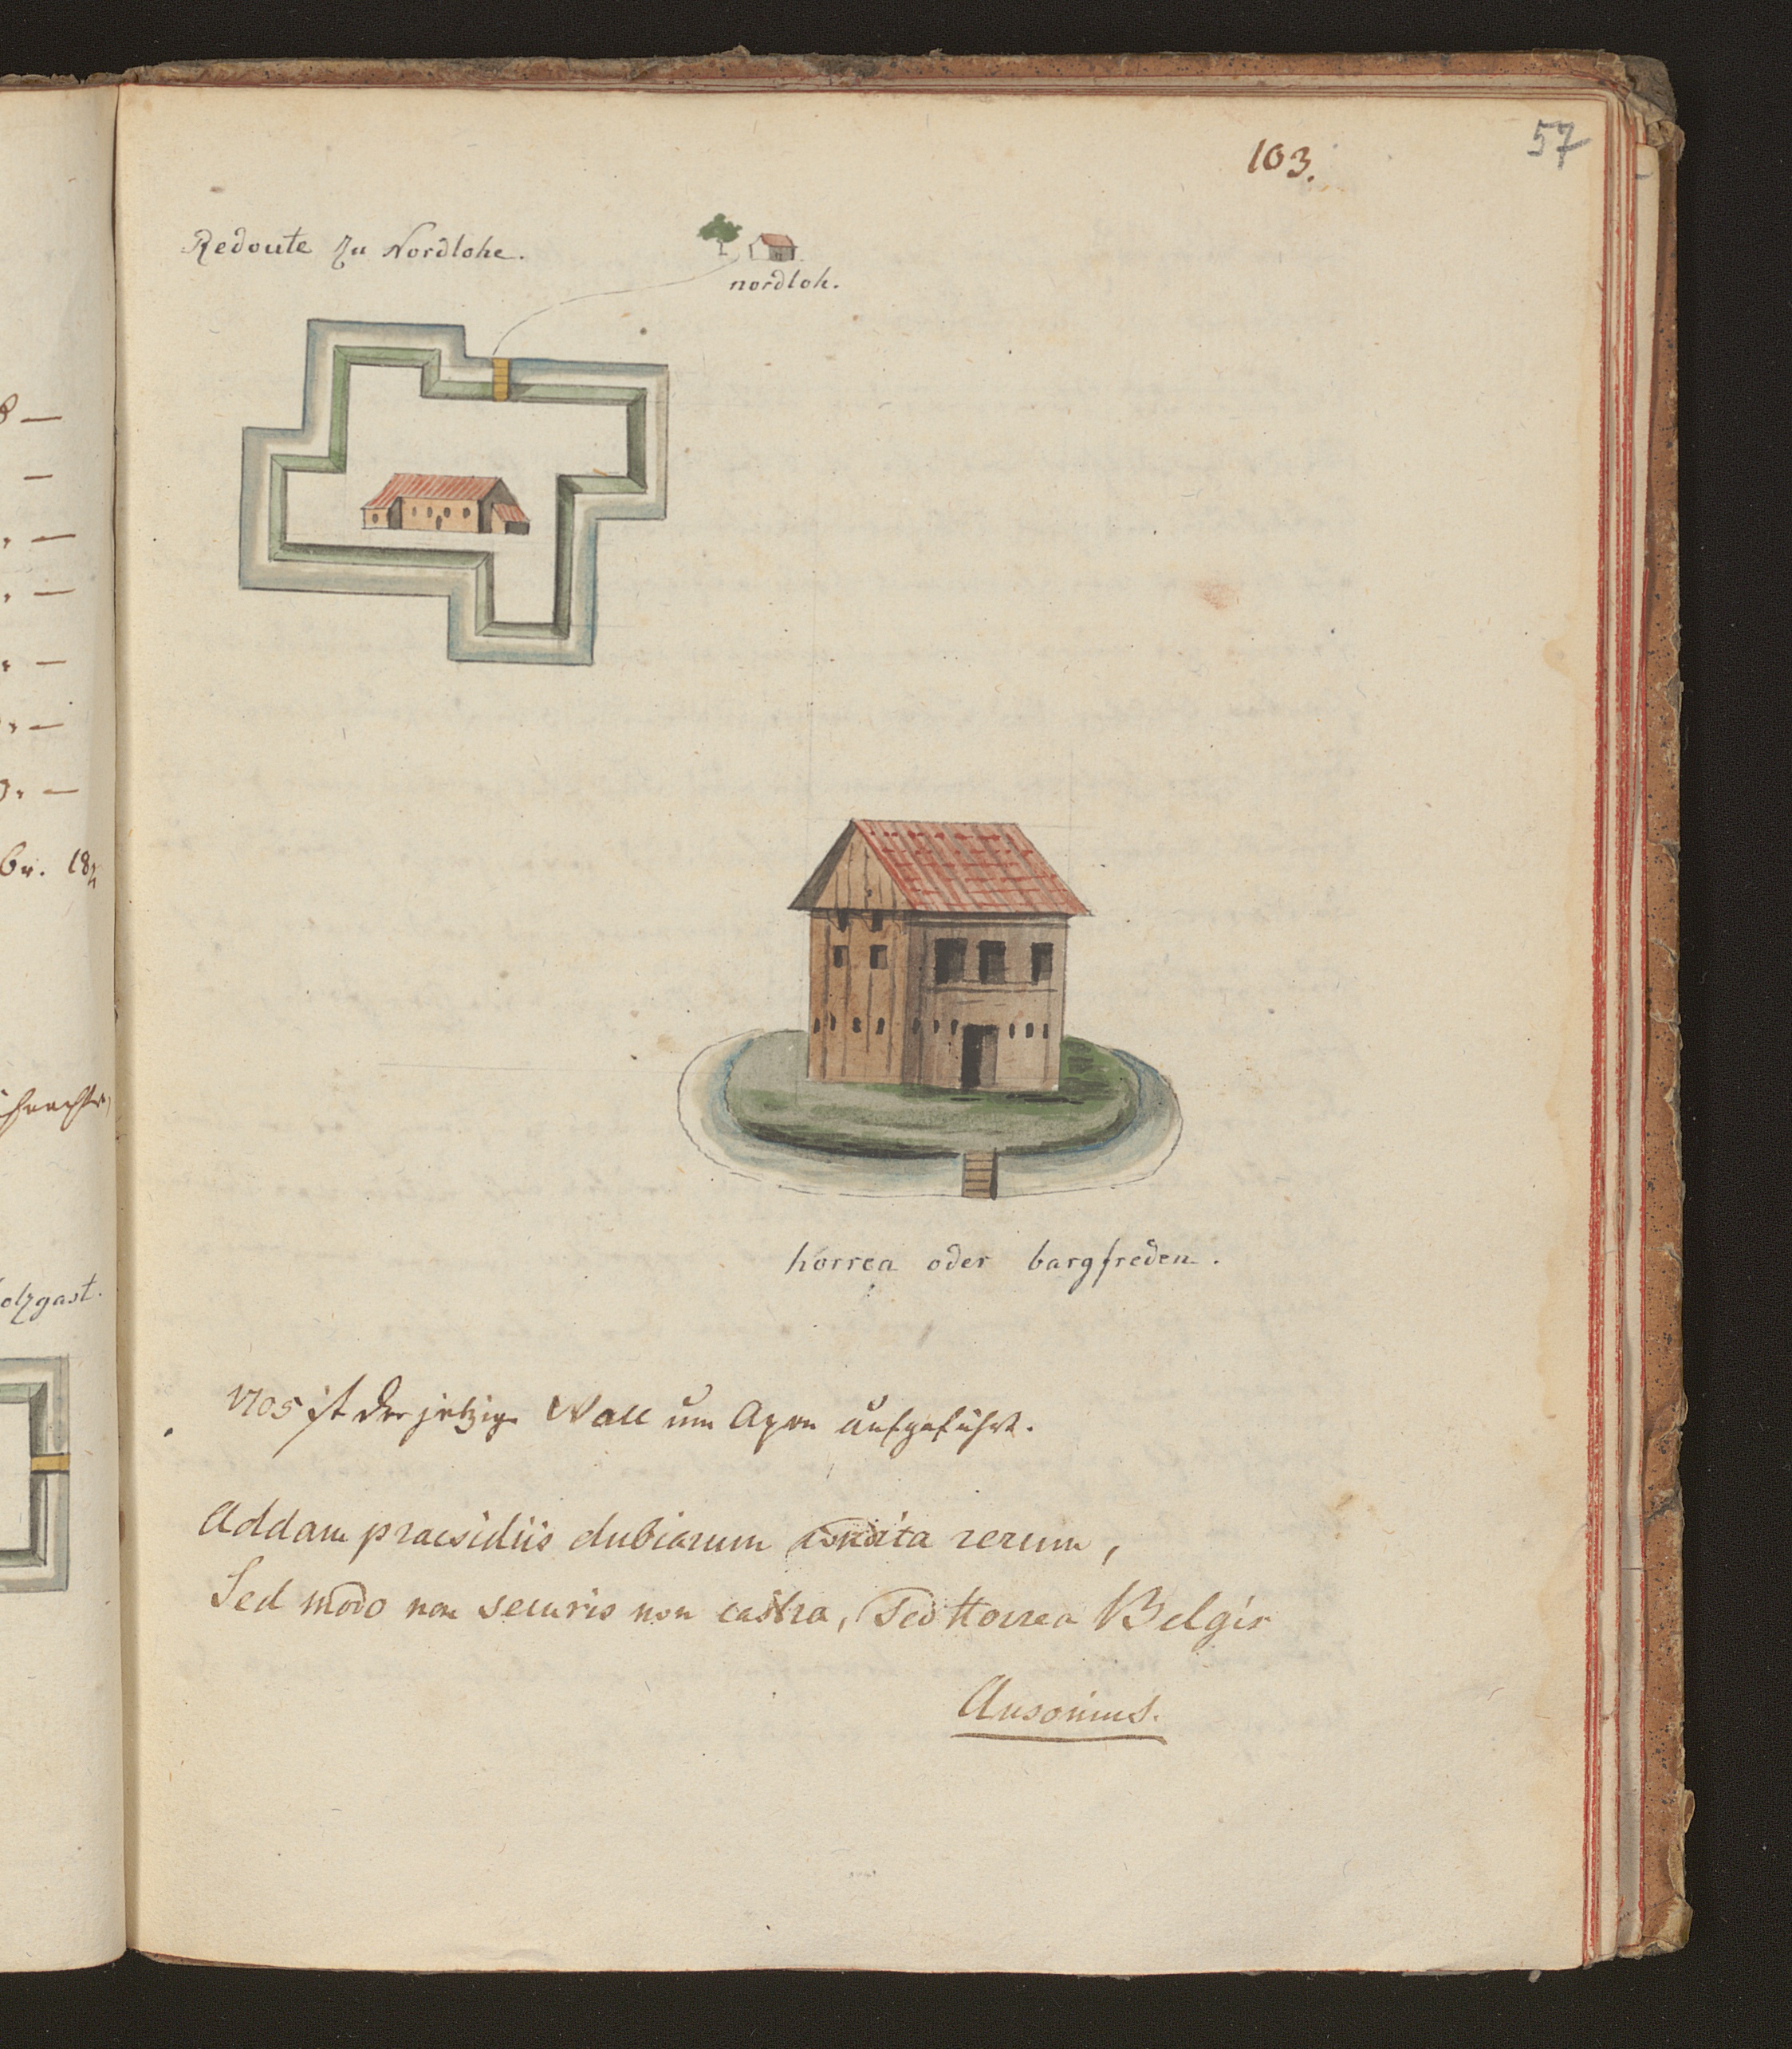 57
103.
Redoute zu Nordlohe.
nordloh.
horrea oder bargfreden.
1705 ist der jetzige Wall um Apen aufgeführt.
Addam praesidiis dubiarum condita rerum,
Sed modo non securis non castra, sed Horrea Belgis
Ausonius.
olzgast.